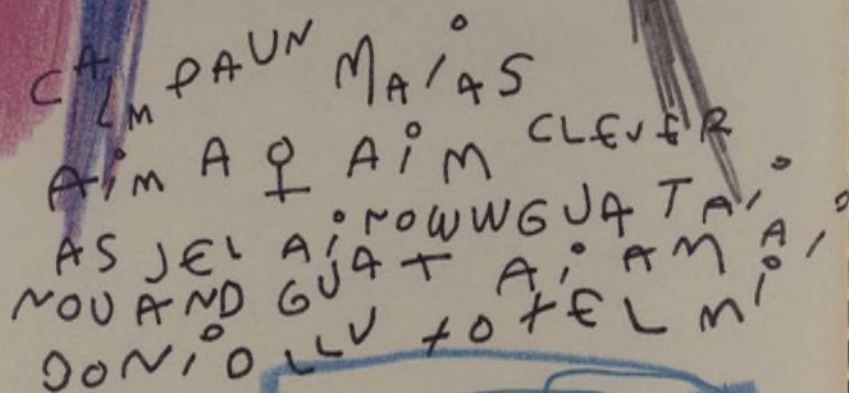 CALM DAUN MAiAS
AiM A ♀ AiM CLEVER
AS JEL Ai NOWWGUAT Ai
NOU AND GUAT Ai AM Ai
DONiD LLU tO tEL Mi